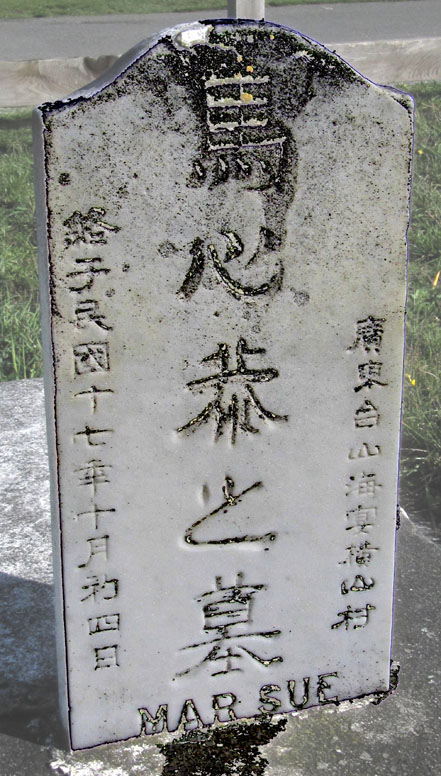 廣東台山海宴橫山村
馬心恭之墓
終于民國十七年十月初四日
MAR SUE